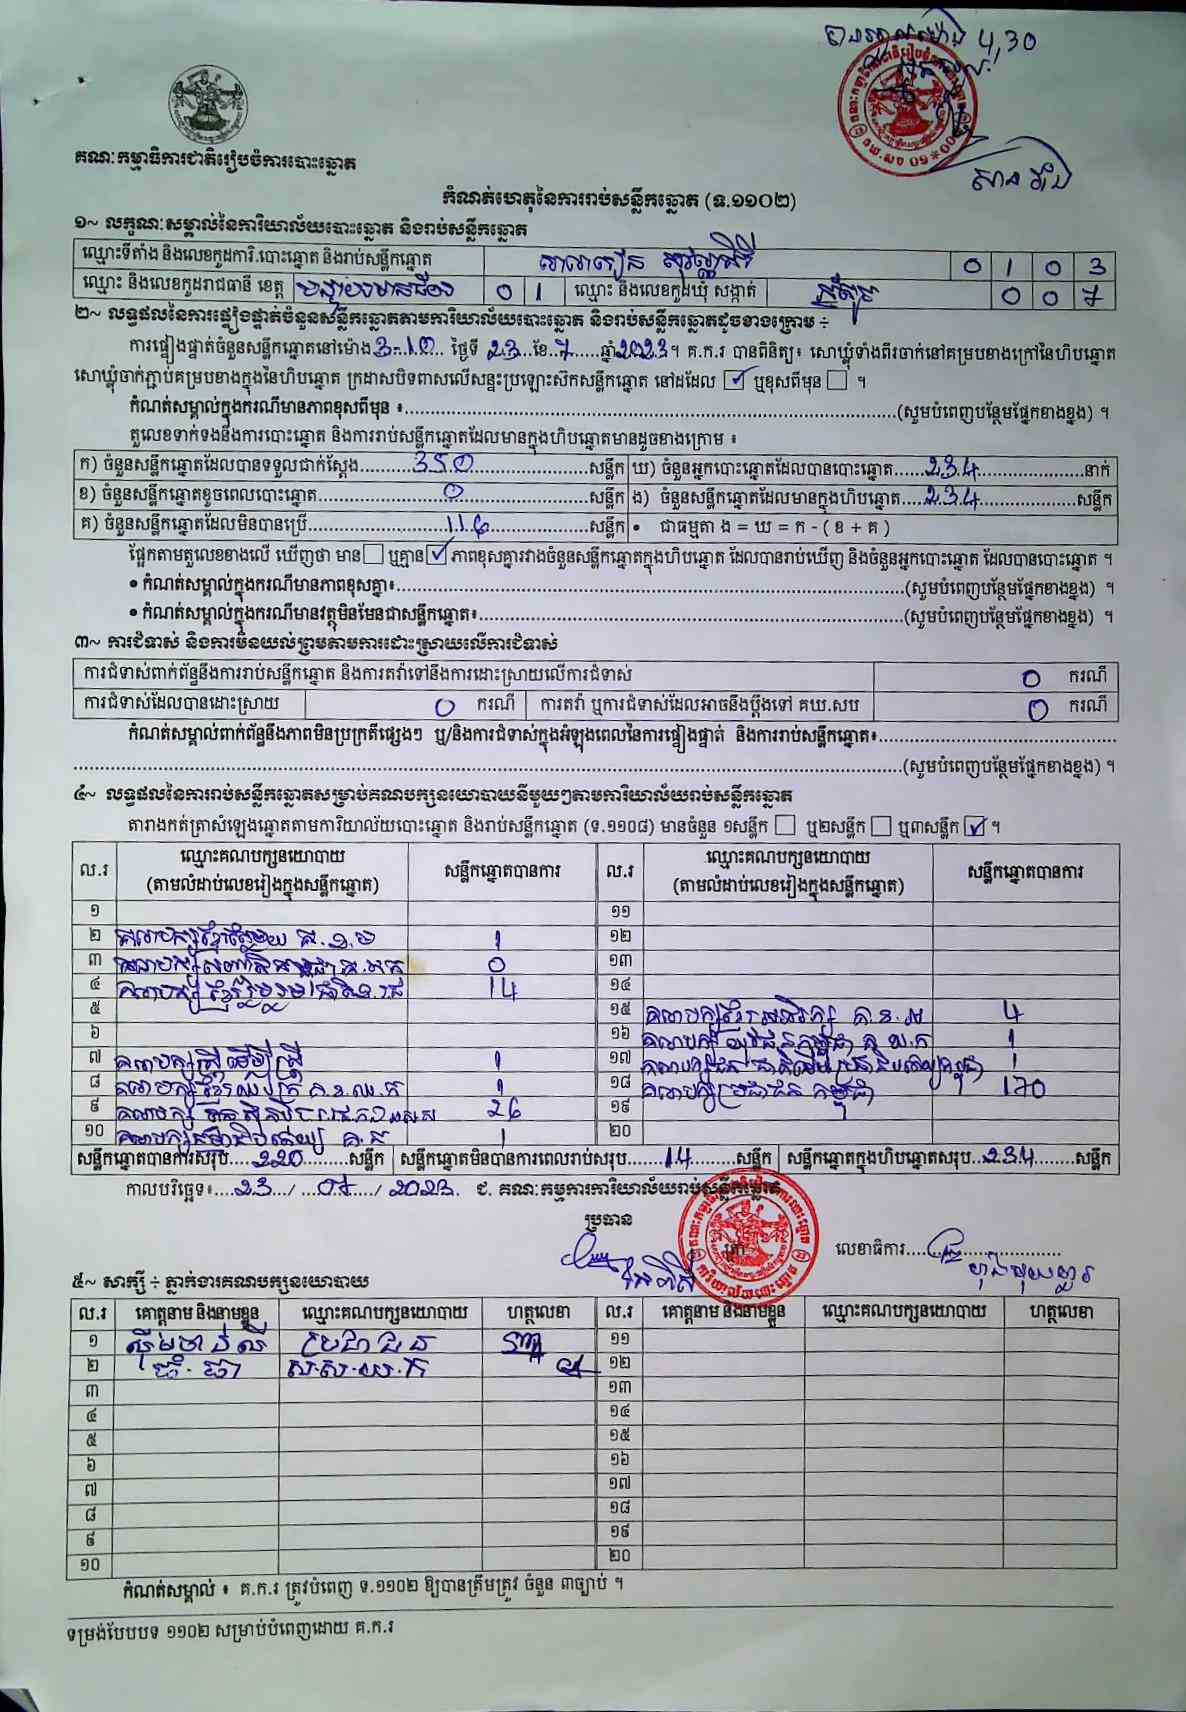 4,30
គណៈកម្មាធិការជាតិរៀបចំការបោះឆ្នោត
កំណត់ហេតុនៃការរាប់សន្លឹកឆ្នោត (ទ.១១០២)
១~ លក្ខណៈសម្គាល់នៃការិយាល័យបោះឆ្នោត និងរាប់សន្លឹកឆ្នោត
ឈ្មោះទីតាំង និងលេខកូដការិ.បោះឆ្នោត និងរាប់សន្លឹកឆ្នោត 0 1 0 3
ឈ្មោះ និងលេខកូដរាជធានី ខេត្ត បន្ទាយមានជ័យ 0 1 ឈ្មោះ និងលេខកូដឃុំ សង្កាត់ 0 0 7
២~ លទ្ធផលនៃការផ្ទៀងផ្ទាត់ចំនួនសន្លឹកឆ្នោតតាមការិយាល័យបោះឆ្នោត និងរាប់សន្លឹកឆ្នោតដូចខាងក្រោម ÷
ការផ្ទៀងផ្ទាត់ចំនួនសន្លឹកឆ្នោតនៅម៉ោង 3-10 ថ្ងៃទី 23 ខែ 7 ឆ្នាំ 2023 ។ គ.ក.រ បានពិនិត្យ៖ សោឃ្លុំទាំងពីរចាក់នៅគម្របខាងក្រៅនៃហិបឆ្នោត
សោឃ្លុំចាក់ភ្ជាប់គម្របខាងក្នុងនៃហិបឆ្នោត ក្រដាសបិទពាសលើសន្ទះប្រឡោះស៊កសន្លឹកឆ្នោត នៅដដែល ☑ ឬខុសពីមុន ☐ ។
កំណត់សម្គាល់ក្នុងករណីមានភាពខុសពីមុន ៖ (សូមបំពេញបន្ថែមផ្នែកខាងខ្នង) ។
តួលេខទាក់ទងនឹងការបោះឆ្នោត និងការរាប់សន្លឹកឆ្នោតដែលមានក្នុងហិបឆ្នោតមានដូចខាងក្រោម ៖
ក) ចំនួនសន្លឹកឆ្នោតដែលបានទទួលជាក់ស្ដែង 350 សន្លឹក ឃ) ចំនួនអ្នកបោះឆ្នោតដែលបានបោះឆ្នោត 234 នាក់
ខ) ចំនួនសន្លឹកឆ្នោតខូចពេលបោះឆ្នោត 0 សន្លឹក ង) ចំនួនសន្លឹកឆ្នោតដែលមានក្នុងហិបឆ្នោត 234 សន្លឹក
គ) ចំនួនសន្លឹកឆ្នោតដែលមិនបានប្រើ 116 សន្លឹក • ជាធម្មតា ង = ឃ = ក - ( ខ + គ )
ផ្អែកតាមតួលេខខាងលើ ឃើញថា មាន ☐ ឬគ្មាន ☑ ភាពខុសគ្នារវាងចំនួនសន្លឹកឆ្នោតក្នុងហិបឆ្នោត ដែលបានរាប់ឃើញ និងចំនួនអ្នកបោះឆ្នោត ដែលបានបោះឆ្នោត ។
• កំណត់សម្គាល់ក្នុងករណីមានភាពខុសគ្នា៖ (សូមបំពេញបន្ថែមផ្នែកខាងខ្នង) ។
• កំណត់សម្គាល់ក្នុងករណីមានវត្ថុមិនមែនជាសន្លឹកឆ្នោត៖ (សូមបំពេញបន្ថែមផ្នែកខាងខ្នង) ។
៣~ ការជំទាស់ និងការមិនយល់ព្រមតាមការដោះស្រាយលើការជំទាស់
ការជំទាស់ពាក់ព័ន្ធនឹងការរាប់សន្លឹកឆ្នោត និងការតវ៉ាទៅនឹងការដោះស្រាយលើការជំទាស់ 0 ករណី
ការជំទាស់ដែលបានដោះស្រាយ 0 ករណី ការតវ៉ា ឬការជំទាស់ដែលអាចនឹងប្ដឹងទៅ គឃ.សប 0 ករណី
កំណត់សម្គាល់ពាក់ព័ន្ធនឹងភាពមិនប្រក្រតីផ្សេងៗ ឬ/និងការជំទាស់ក្នុងអំឡុងពេលនៃការផ្ទៀងផ្ទាត់ និងការរាប់សន្លឹកឆ្នោត៖
(សូមបំពេញបន្ថែមផ្នែកខាងខ្នង) ។
៤~ លទ្ធផលនៃការរាប់សន្លឹកឆ្នោតសម្រាប់គណបក្សនយោបាយនីមួយៗតាមការិយាល័យរាប់សន្លឹកឆ្នោត
តារាងកត់ត្រាសំឡេងឆ្នោតតាមការិយាល័យបោះឆ្នោត និងរាប់សន្លឹកឆ្នោត (ទ.១១០៨) មានចំនួន ១សន្លឹក ☐ ឬ២សន្លឹក ☐ ឬ៣សន្លឹក ☑ ។
ល.រ ឈ្មោះគណបក្សនយោបាយ (តាមលំដាប់លេខរៀងក្នុងសន្លឹកឆ្នោត) សន្លឹកឆ្នោតបានការ ល.រ ឈ្មោះគណបក្សនយោបាយ (តាមលំដាប់លេខរៀងក្នុងសន្លឹកឆ្នោត) សន្លឹកឆ្នោតបានការ
១ ១១
២ 1 ១២
៣ 0 ១៣
៤ 14 ១៤
៥ ១៥ 4
៦ ១៦ គណបក្ស យុវជនកម្ពុជា គ.យ.ក 1
៧ គណបក្សស្ត្រីដើម្បីស្ត្រី 1 ១៧ 1
៨ 1 ១៨ គណបក្សប្រជាជនកម្ពុជា 170
៩ 26 ១៩
១០ 1 ២០
សន្លឹកឆ្នោតបានការសរុប 220 សន្លឹក សន្លឹកឆ្នោតមិនបានការពេលរាប់សរុប 14 សន្លឹក សន្លឹកឆ្នោតក្នុងហិបឆ្នោតសរុប 234 សន្លឹក
កាលបរិច្ឆេទ៖ 23 / 07 / 2023 ជ. គណៈកម្មការការិយាល័យរាប់សន្លឹកឆ្នោត
ប្រធាន
លេខាធិការ
៥~ សាក្សី ÷ ភ្នាក់ងារគណបក្សនយោបាយ
ល.រ គោត្តនាម និងនាមខ្លួន ឈ្មោះគណបក្សនយោបាយ ហត្ថលេខា ល.រ គោត្តនាម និងនាមខ្លួន ឈ្មោះគណបក្សនយោបាយ ហត្ថលេខា
១ ប្រជាជន ១១
២ ១២
៣ ១៣
៤ ១៤
៥ ១៥
៦ ១៦
៧ ១៧
៨ ១៨
៩ ១៩
១០ ២០
កំណត់សម្គាល់ ៖ គ.ក.រ ត្រូវបំពេញ ទ.១១០២ ឱ្យបានត្រឹមត្រូវ ចំនួន ៣ច្បាប់ ។
ទម្រង់បែបបទ ១១០២ សម្រាប់បំពេញដោយ គ.ក.រ